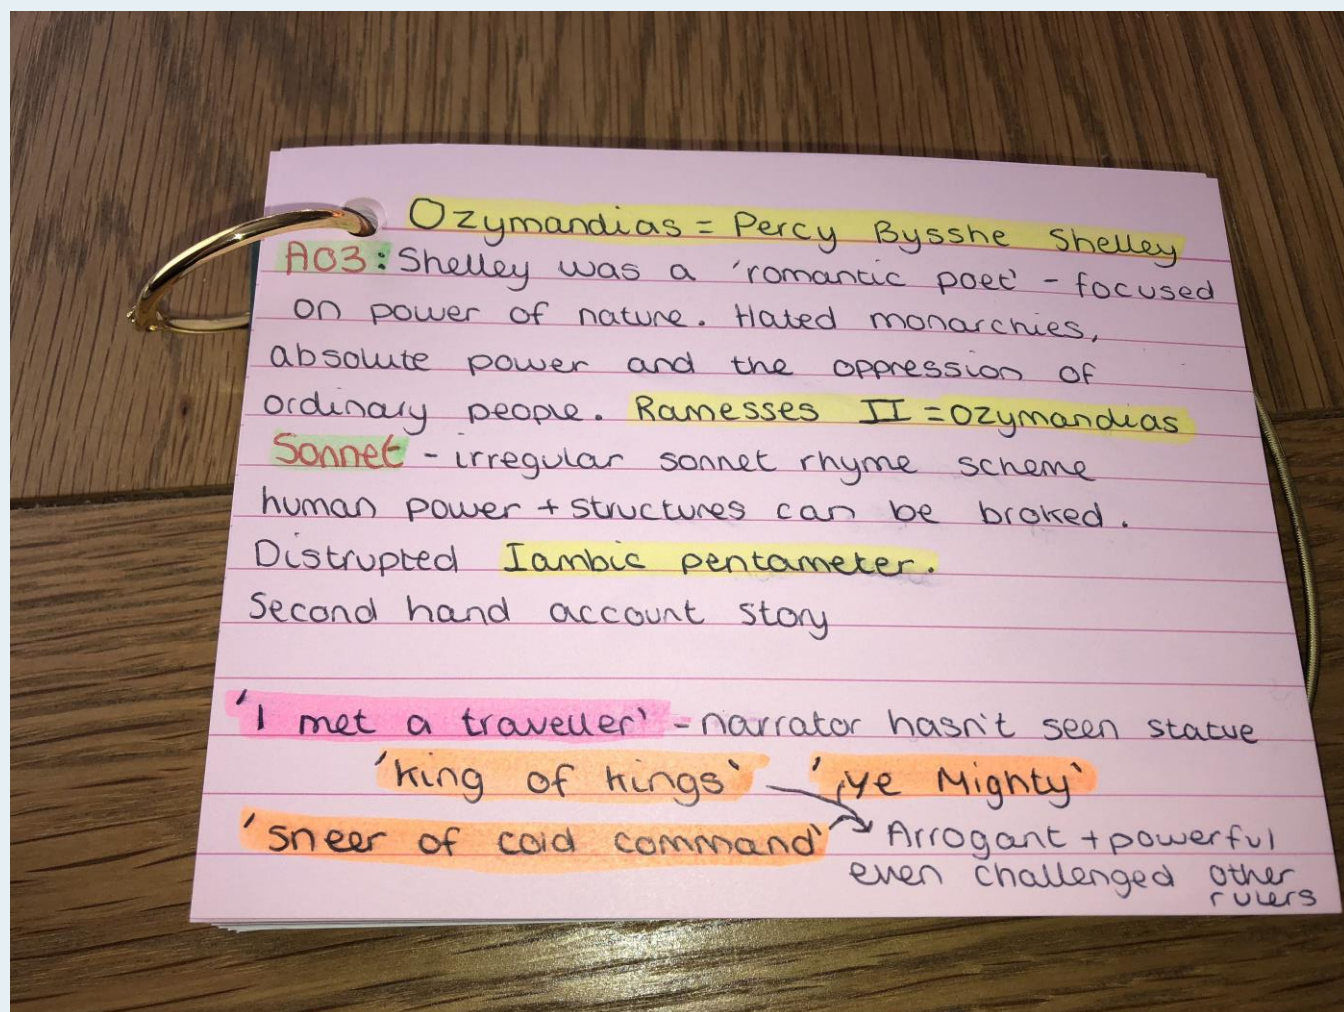 Ozymandias = Percy Bysshe Shelley
AO3: Shelley was a 'romantic poet' - focused
on power of nature. Hated monarchies,
absolute power and the oppression of
ordinary people. Ramesses II = Ozymandias
Sonnet - irregular sonnet rhyme scheme
human power + structures can be broked.
Distrupted Iambic pentameter.
Second hand account story
'I met a traveller' - narrator hasn't seen statue
'King of Kings' 'ye Mighty'
'sneer of cold command' Arrogant + powerful
even challenged other
rulers